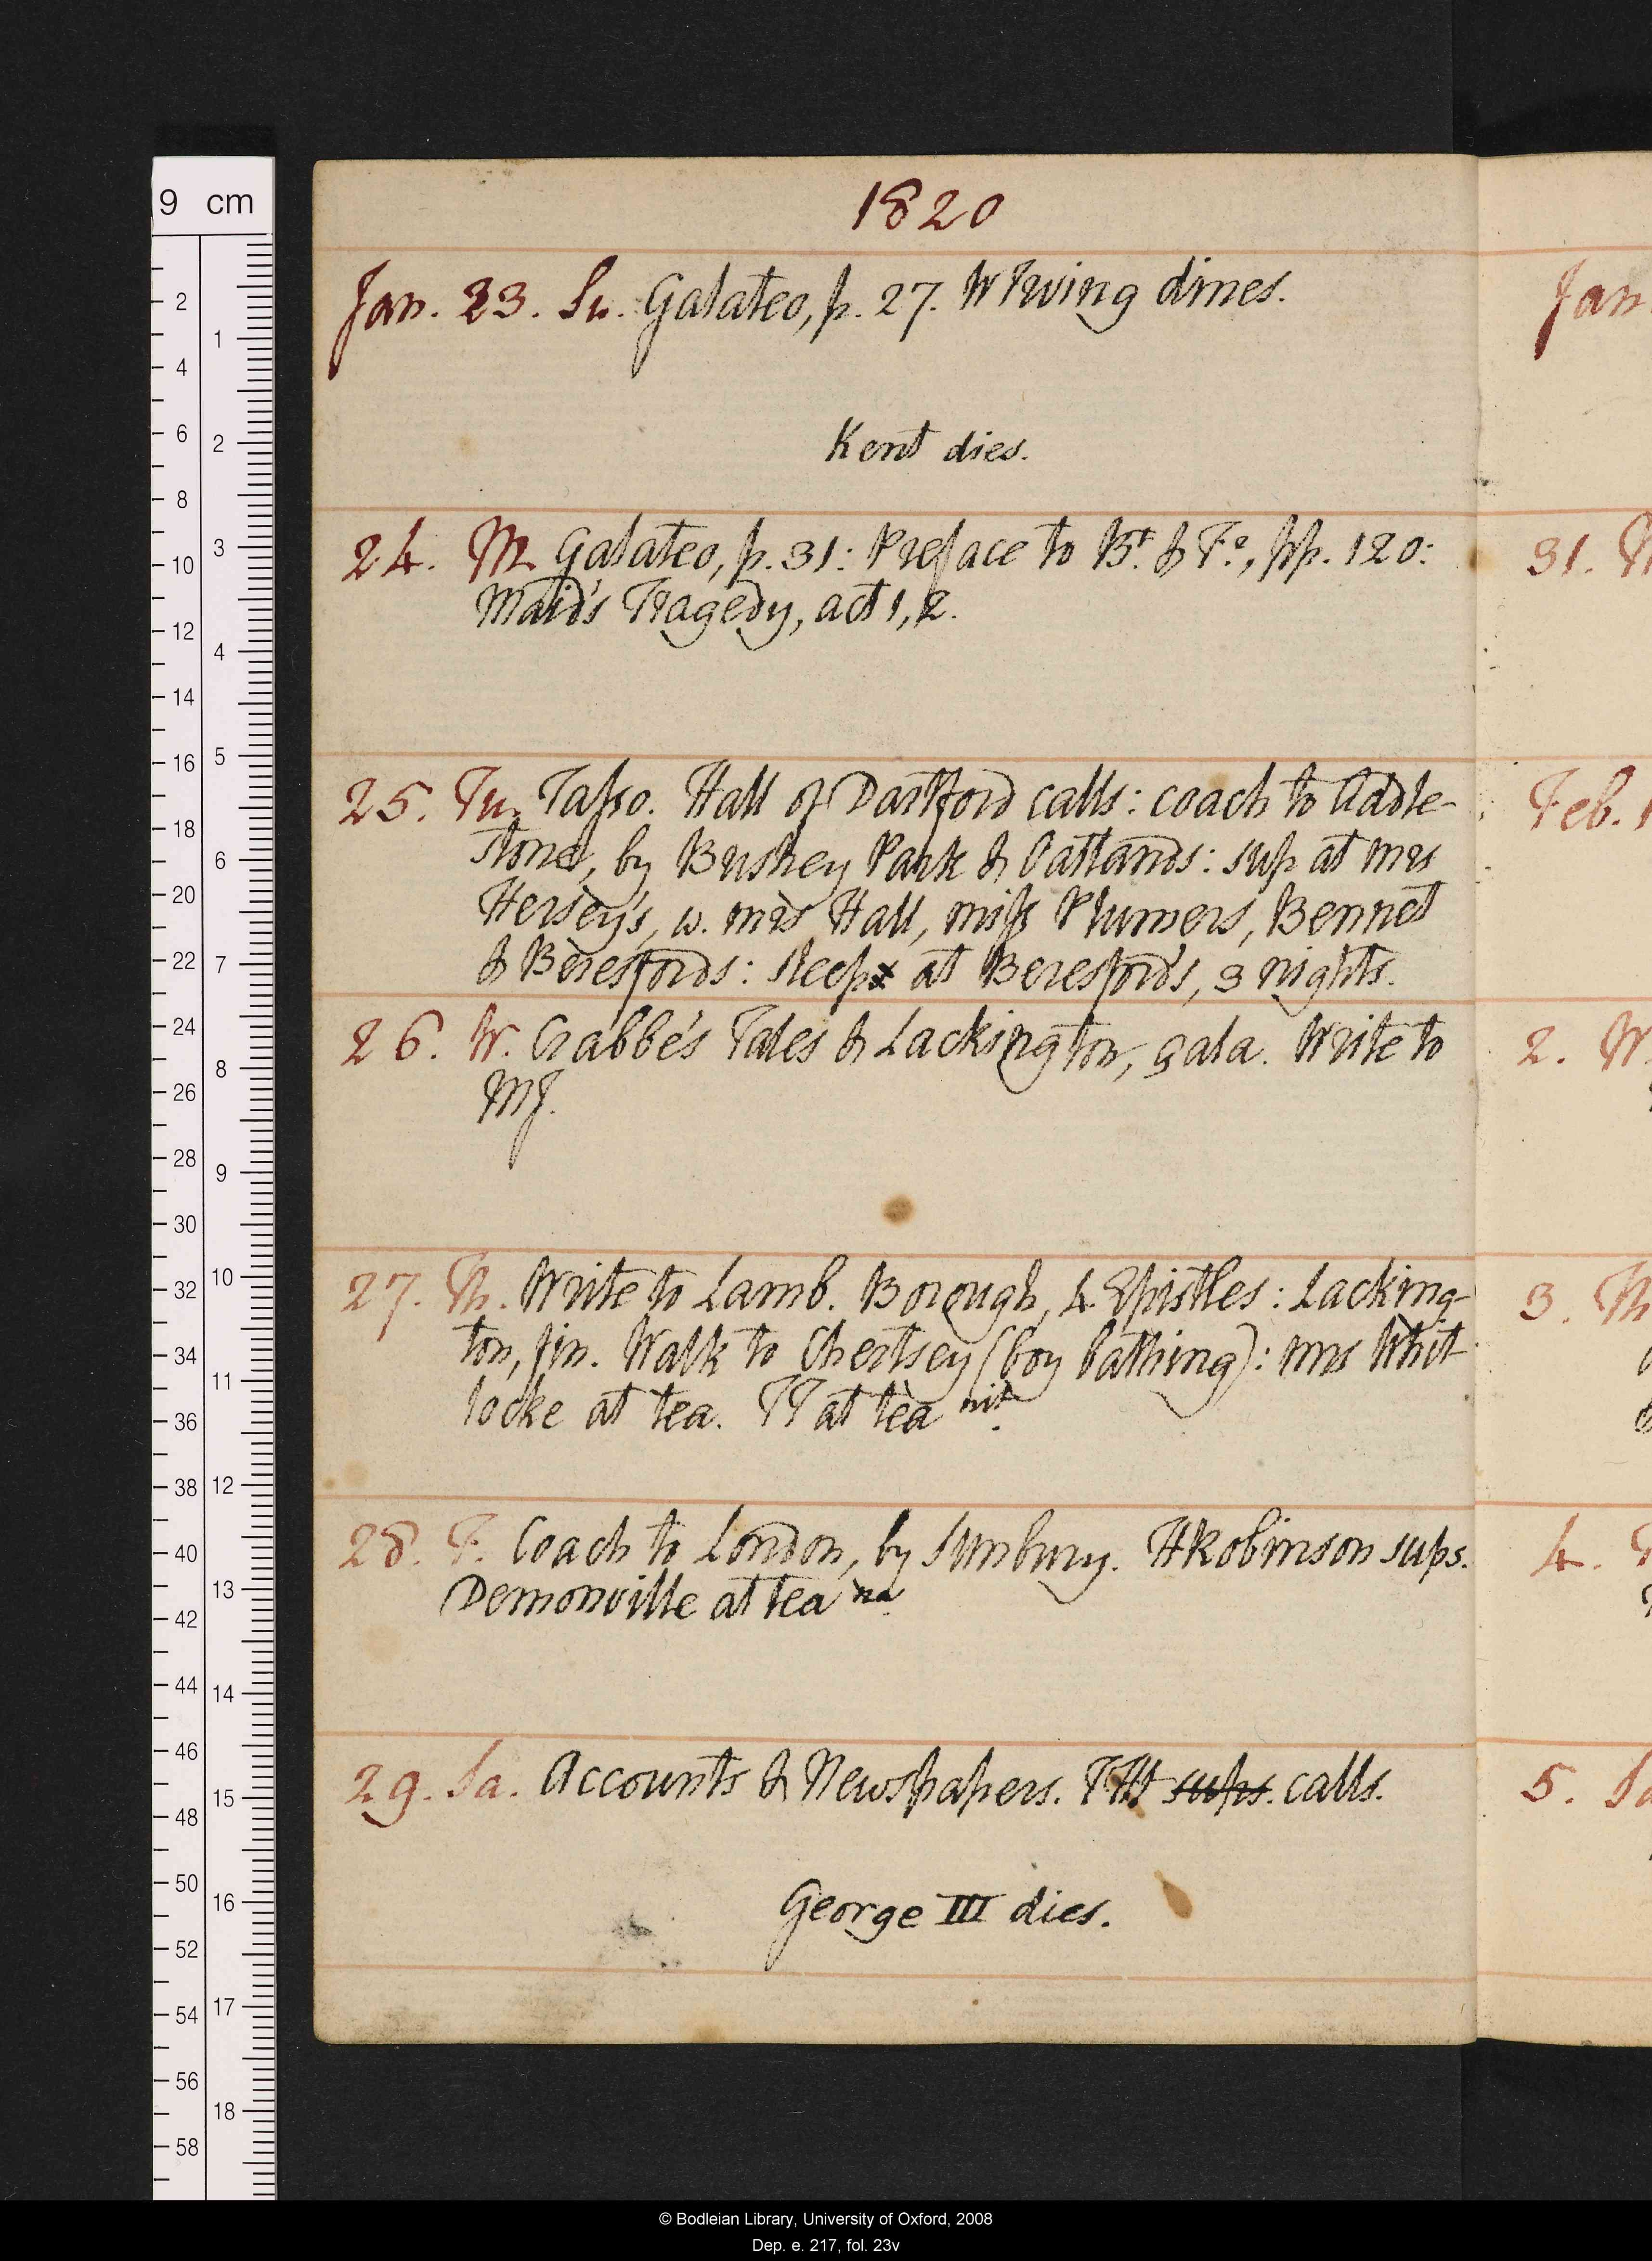 1820
Jan. 23. Su. Galateo, p. 27. W Irving dines.
Kent dies.
24. M. Galateo, p. 31: Preface to Bt. & Fo., pp. 120:
Maid's Tragedy, act 1, 2.
25. Tu. Tasso. Hall of Dartford calls: coach to Addle-
stone, by Bushey Park & Oatlands: sup at mrs
Hersey's, w. mrs Hall, miss Plumers, Bennet
& Beresfords: sleep at Beresford's, 3 nights.
26. W. Crabbe's Tales & Lackington, çala. Write to
MJ.
27. Th. Write to Lamb. Borough, 4 Epistles: Lacking-
ton, fin. Walk to Chertsey (boy bathing): mrs Whit-
locke at tea. TT at tea nit.
28. F. Coach to London, by Sunbury. HRobinson sups.
Demonville at tea na.
29. Sa. Accounts & Newspapers. THt sups. calls.
George III dies.
Jan
31. M
Feb. 1
2. W
3. Th
4.
5. Sa
9 cm
2
4
6
8
10
12
14
16
18
20
22
24
26
28
30
32
34
36
38
40
42
44
46
48
50
52
54
56
58
1
2
3
4
5
6
7
8
9
10
11
12
13
14
15
16
17
18
© Bodleian Library, University of Oxford, 2008
Dep. e. 217, fol. 23v